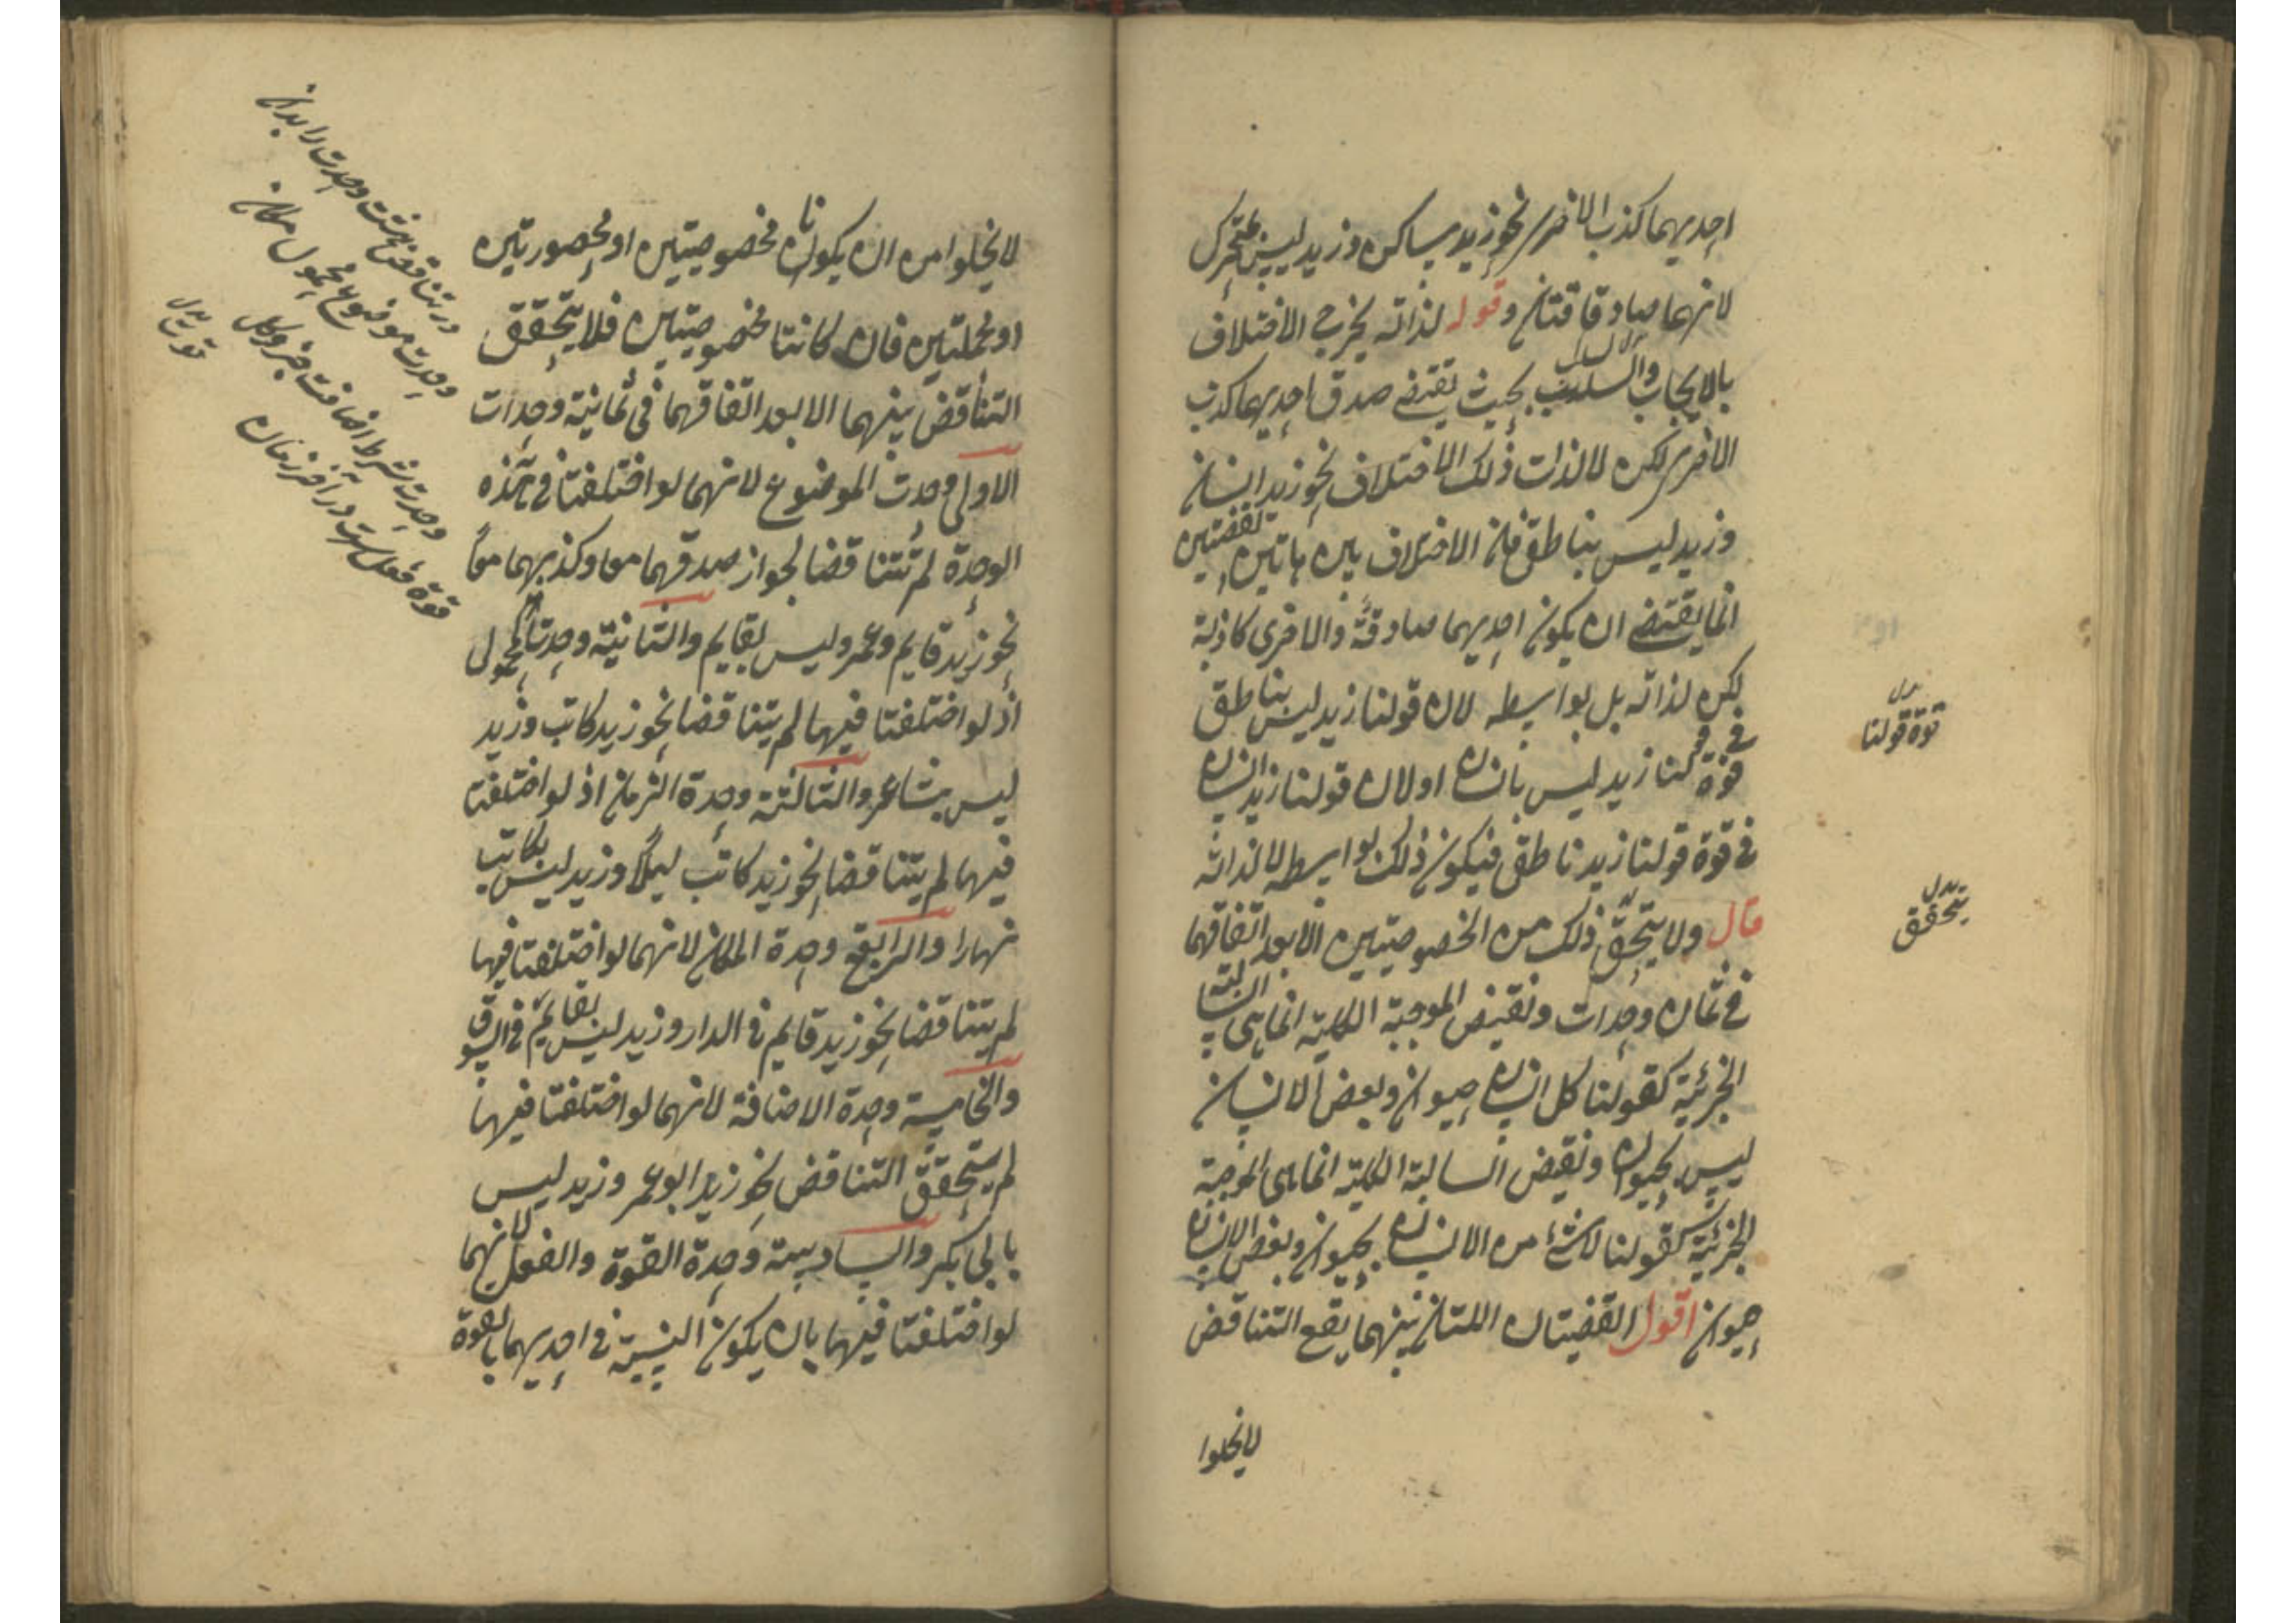 احديهما كذب الاخرى نحو زيد ساكن وزيد ليس بمتحرك
لانهما صادقتان وقوله لذاته يخرج الاختلاف
بالايجاب والسلب بحيث يقتضى صدق احديهما كذب
الاخرى لكن لا لذات ذلك الاختلاف نحو زيد انسان
وزيد ليس بناطق فان الاختلاف بين هاتين القضيتين
انما يقتضى ان يكون احديهما صادقة والاخرى كاذبة
لكن لذاته بل بواسطه لان قولنا زيد ليس بناطق
فى قوة قولنا زيد ليس بانسان او لان قولنا زيد انسان
فى قوة قولنا زيد ناطق فيكون ذلك بواسطه لا لذاته
قال ولا يتحقق ذلك من الخصوصيتين الا بعد اتفاقهما
فى ثمان وحدات ونقيض الموجبة الكلية انما هى السالبة
الجزئية كقولنا كل انسان حيوان وبعض الانسان
ليس بحيوان ونقيض السالبة الكلية انما هى الموجبة
الجزئية كقولنا لا شئ من الانسان بحيوان وبعض الانسان
حيوان اقول القضيتان اللتان بينهما يقع التناقض
لا يخلوا
بدل
قوة قولنا
بدل
يتحقق
لا يخلوا من ان يكونا مخصوصيتين او محصورتين
او مهملتين فان كانتا مخصوصيتين فلا يتحقق
التناقض بينهما الا بعد اتفاقهما فى ثمانية وحدات
الاولى وحدت الموضوع لانهما لو اختلفتا فى هذه
الوحدة لم تتناقضا لجواز صدقهما معا وكذبهما معًا
نحو زيد قايم وعمرو ليس بقايم والثانية وحدت المحمول
اذ لو اختلفتا فيها لم يتناقضا نحو زيد كاتب وزيد
ليس بشاعر والثالثة وحدة الزمان اذ لو اختلفتا
فيها لم يتناقضا نحو زيد كاتب ليلًا وزيد ليس بكاتب
نهارا والرابع وحدة المكان لانهما لو اختلفتا فيها
لم يتناقضا نحو زيد قايم فى الدار وزيد ليس بقائم فى السوق
والخامسة وحدة الاضافة لانهما لو اختلفتا فيها
لم يتحقق التناقض نحو زيد ابو عمر وزيد ليس
بابى بكر والسادسة وحدة القوة والفعل لانهما
لو اختلفتا فيها بان يكون النسبة فى احديهما بالقوة
در تناقض هشت وحدت را بدان
وحدت موضوع محمول مكان
وحدت شرط اضافت جزو كل
قوة فعل است در آخر زمان
بدل